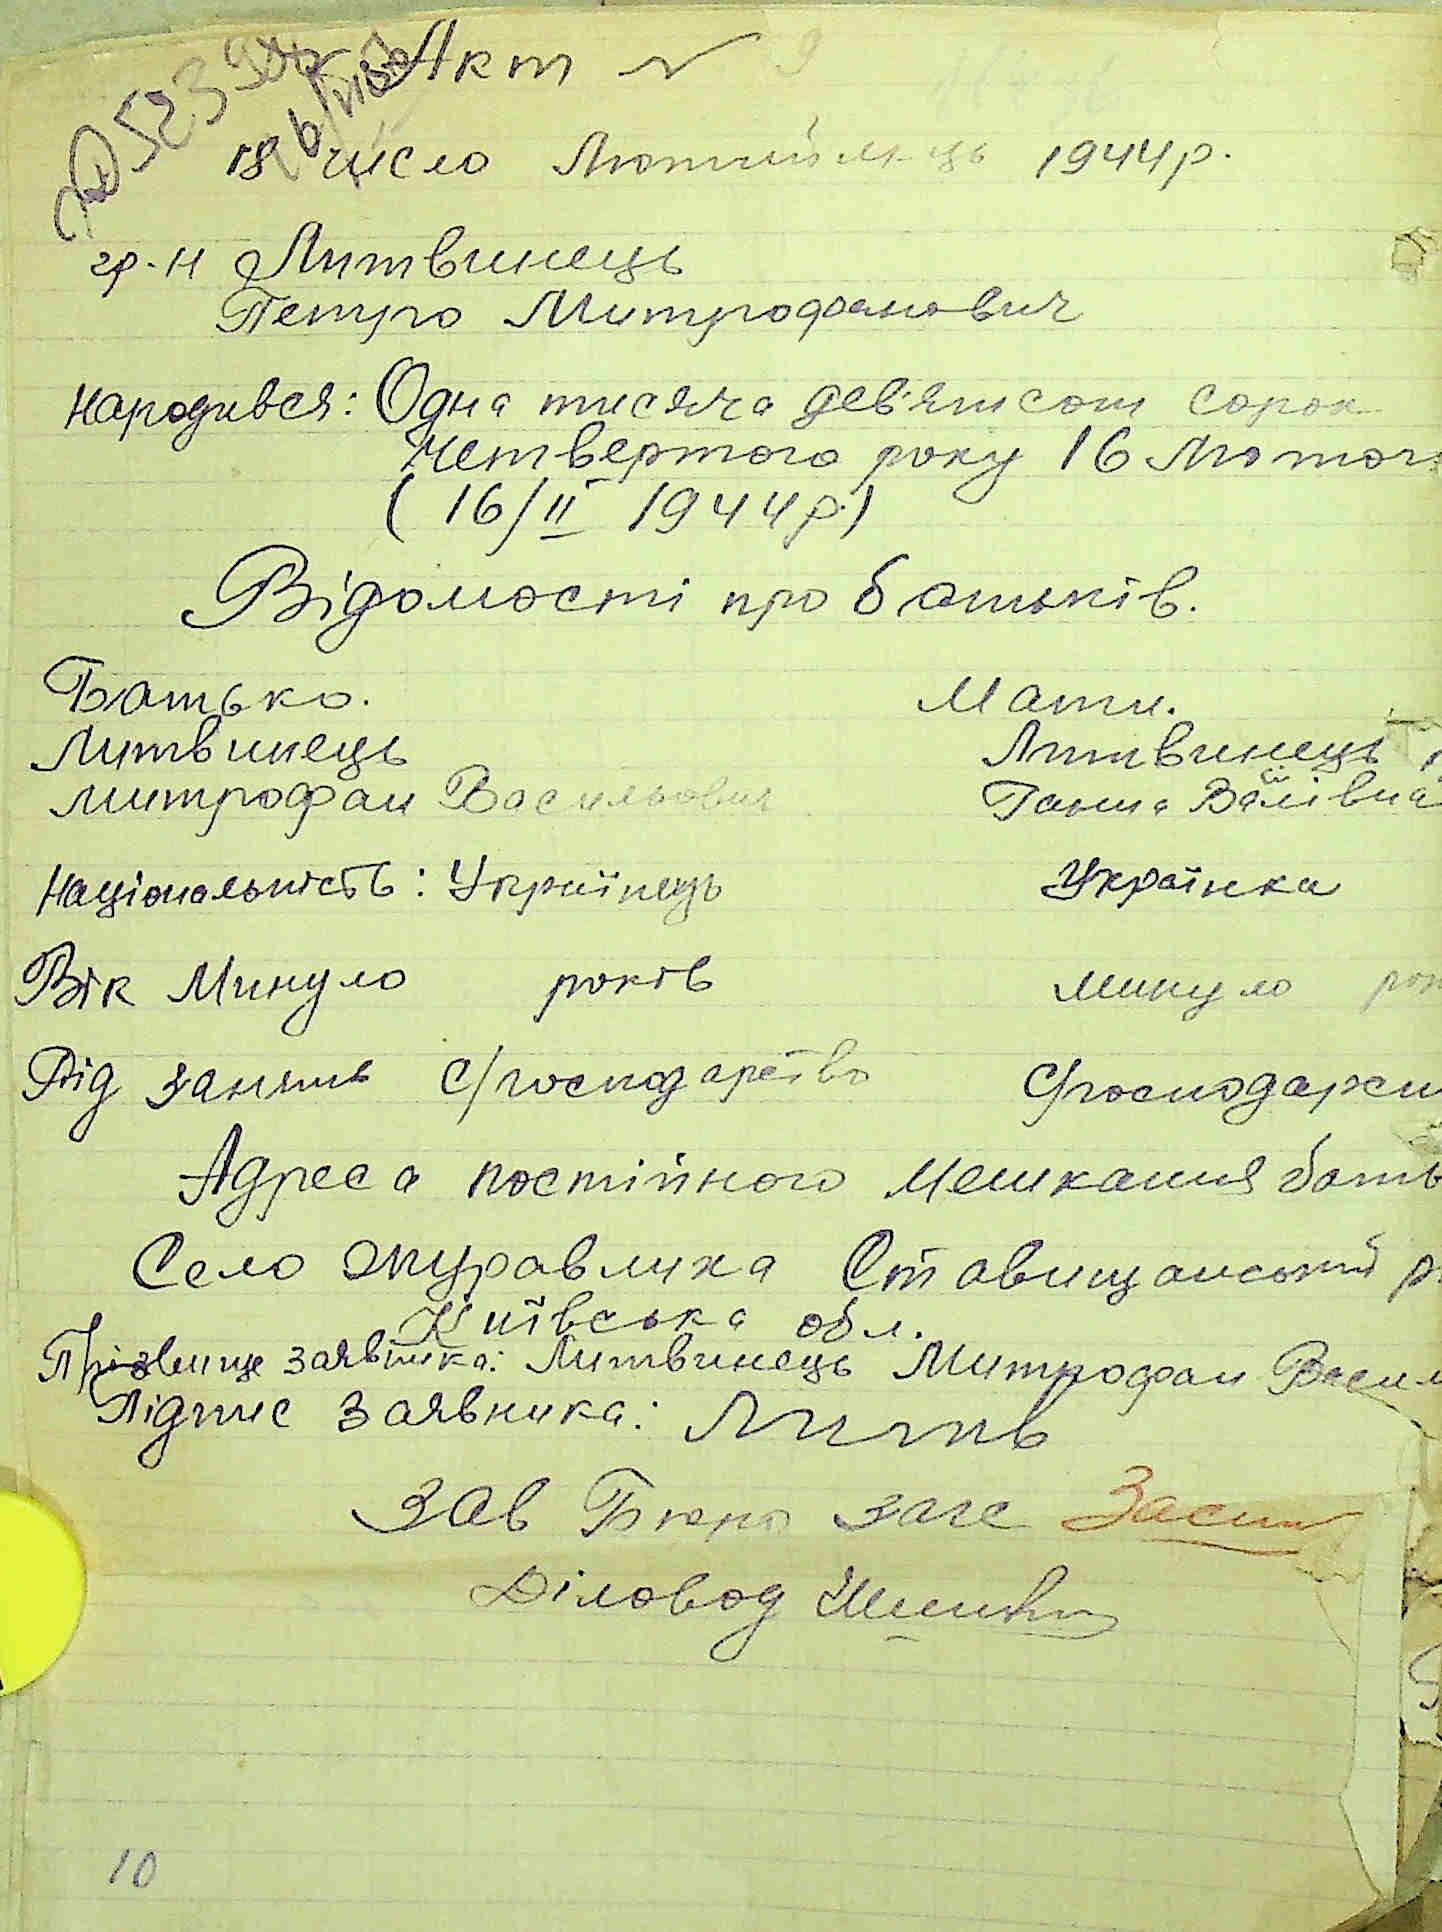 Акт № 9
18 число Лютий м-ць 1944 р.
гр-н Литвинець
Петро Митрофанович
Народився: Одна тисяча дев'ятсот сорок
четвертого року 16 Лютог
(16/II 1944 р.)
Відомості про батьків.
Батько. Мати.
Литвинець Литвинець
Митрофан Васильович Ганна
Національність: Українець Українка
Вік Минуло років минуло рок
Рід занять с/господарство с/господарст
Адреса постійного мешкання бать
Село Журавлиха Ставищанський р
Київська обл.
Прізвище заявника: Литвинець Митрофан Васил
Підпис заявника: Литв
Зав Бюро загс
Діловод
10